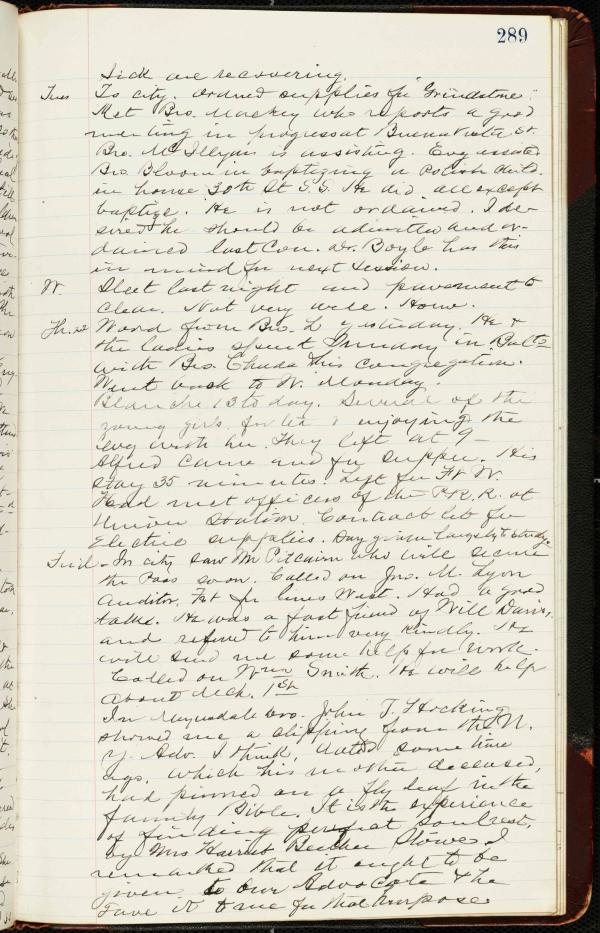 289
Sick are recovering.
Tues To city. Ordered supplies for "Grindstone".
Met Bro. Mackey who reports a good
meeting in progress at Buena Vista St.
Bro. McIllyar is assisting. Eve assisted
Bro Bloom in baptizing a Polish child.
in house 30th St S.S. He did all except
baptize. He is not ordained. I de-
sired he should be admitted and or-
dained last Con. Dr. Boyle has this
in mind for next session.
W. Sleet last night and pavement to
clean. Not very well. Home.
Thurs Word from Bro. L yesterday. He &
the ladies spent Sunday in Balto
with Bro. Chuda this congregation.
Went back to W. Monday.
Blanche 13 to day. Several of the
young girls for tea & enjoying the
evg with her. They left at 9 -
Alfred came and for supper. His
stay 35 minutes. Left for Ft W.
Had met officers of the P.R.R. at
Union Station. Contract let for
Electric supplies. Day given largely to study.
Frid - In city saw Mr Pitcairn who will secure
the Pass soon. Called on Jno. M. Lyon
Auditor, Frt for lines West. Had a good
talk. He was a fast friend of Will Davis,
and referred to him very kindly. He
will send me some help for work.
Called on Wm Smith. He will help
about Mch. 1st
In Maynsdale Bro. John T. Hocking
showed me a clipping from the N.
Y. Adv. I think, dated some time
ago, which his mother deceased,
had pinned on a fly leaf in the
family Bible. It is the experience
of finding perfect soul rest,
by Mrs Harriet Beecher Stowe. I
remarked that it ought to be
given to our Advocate & he
gave it to me for that purpose